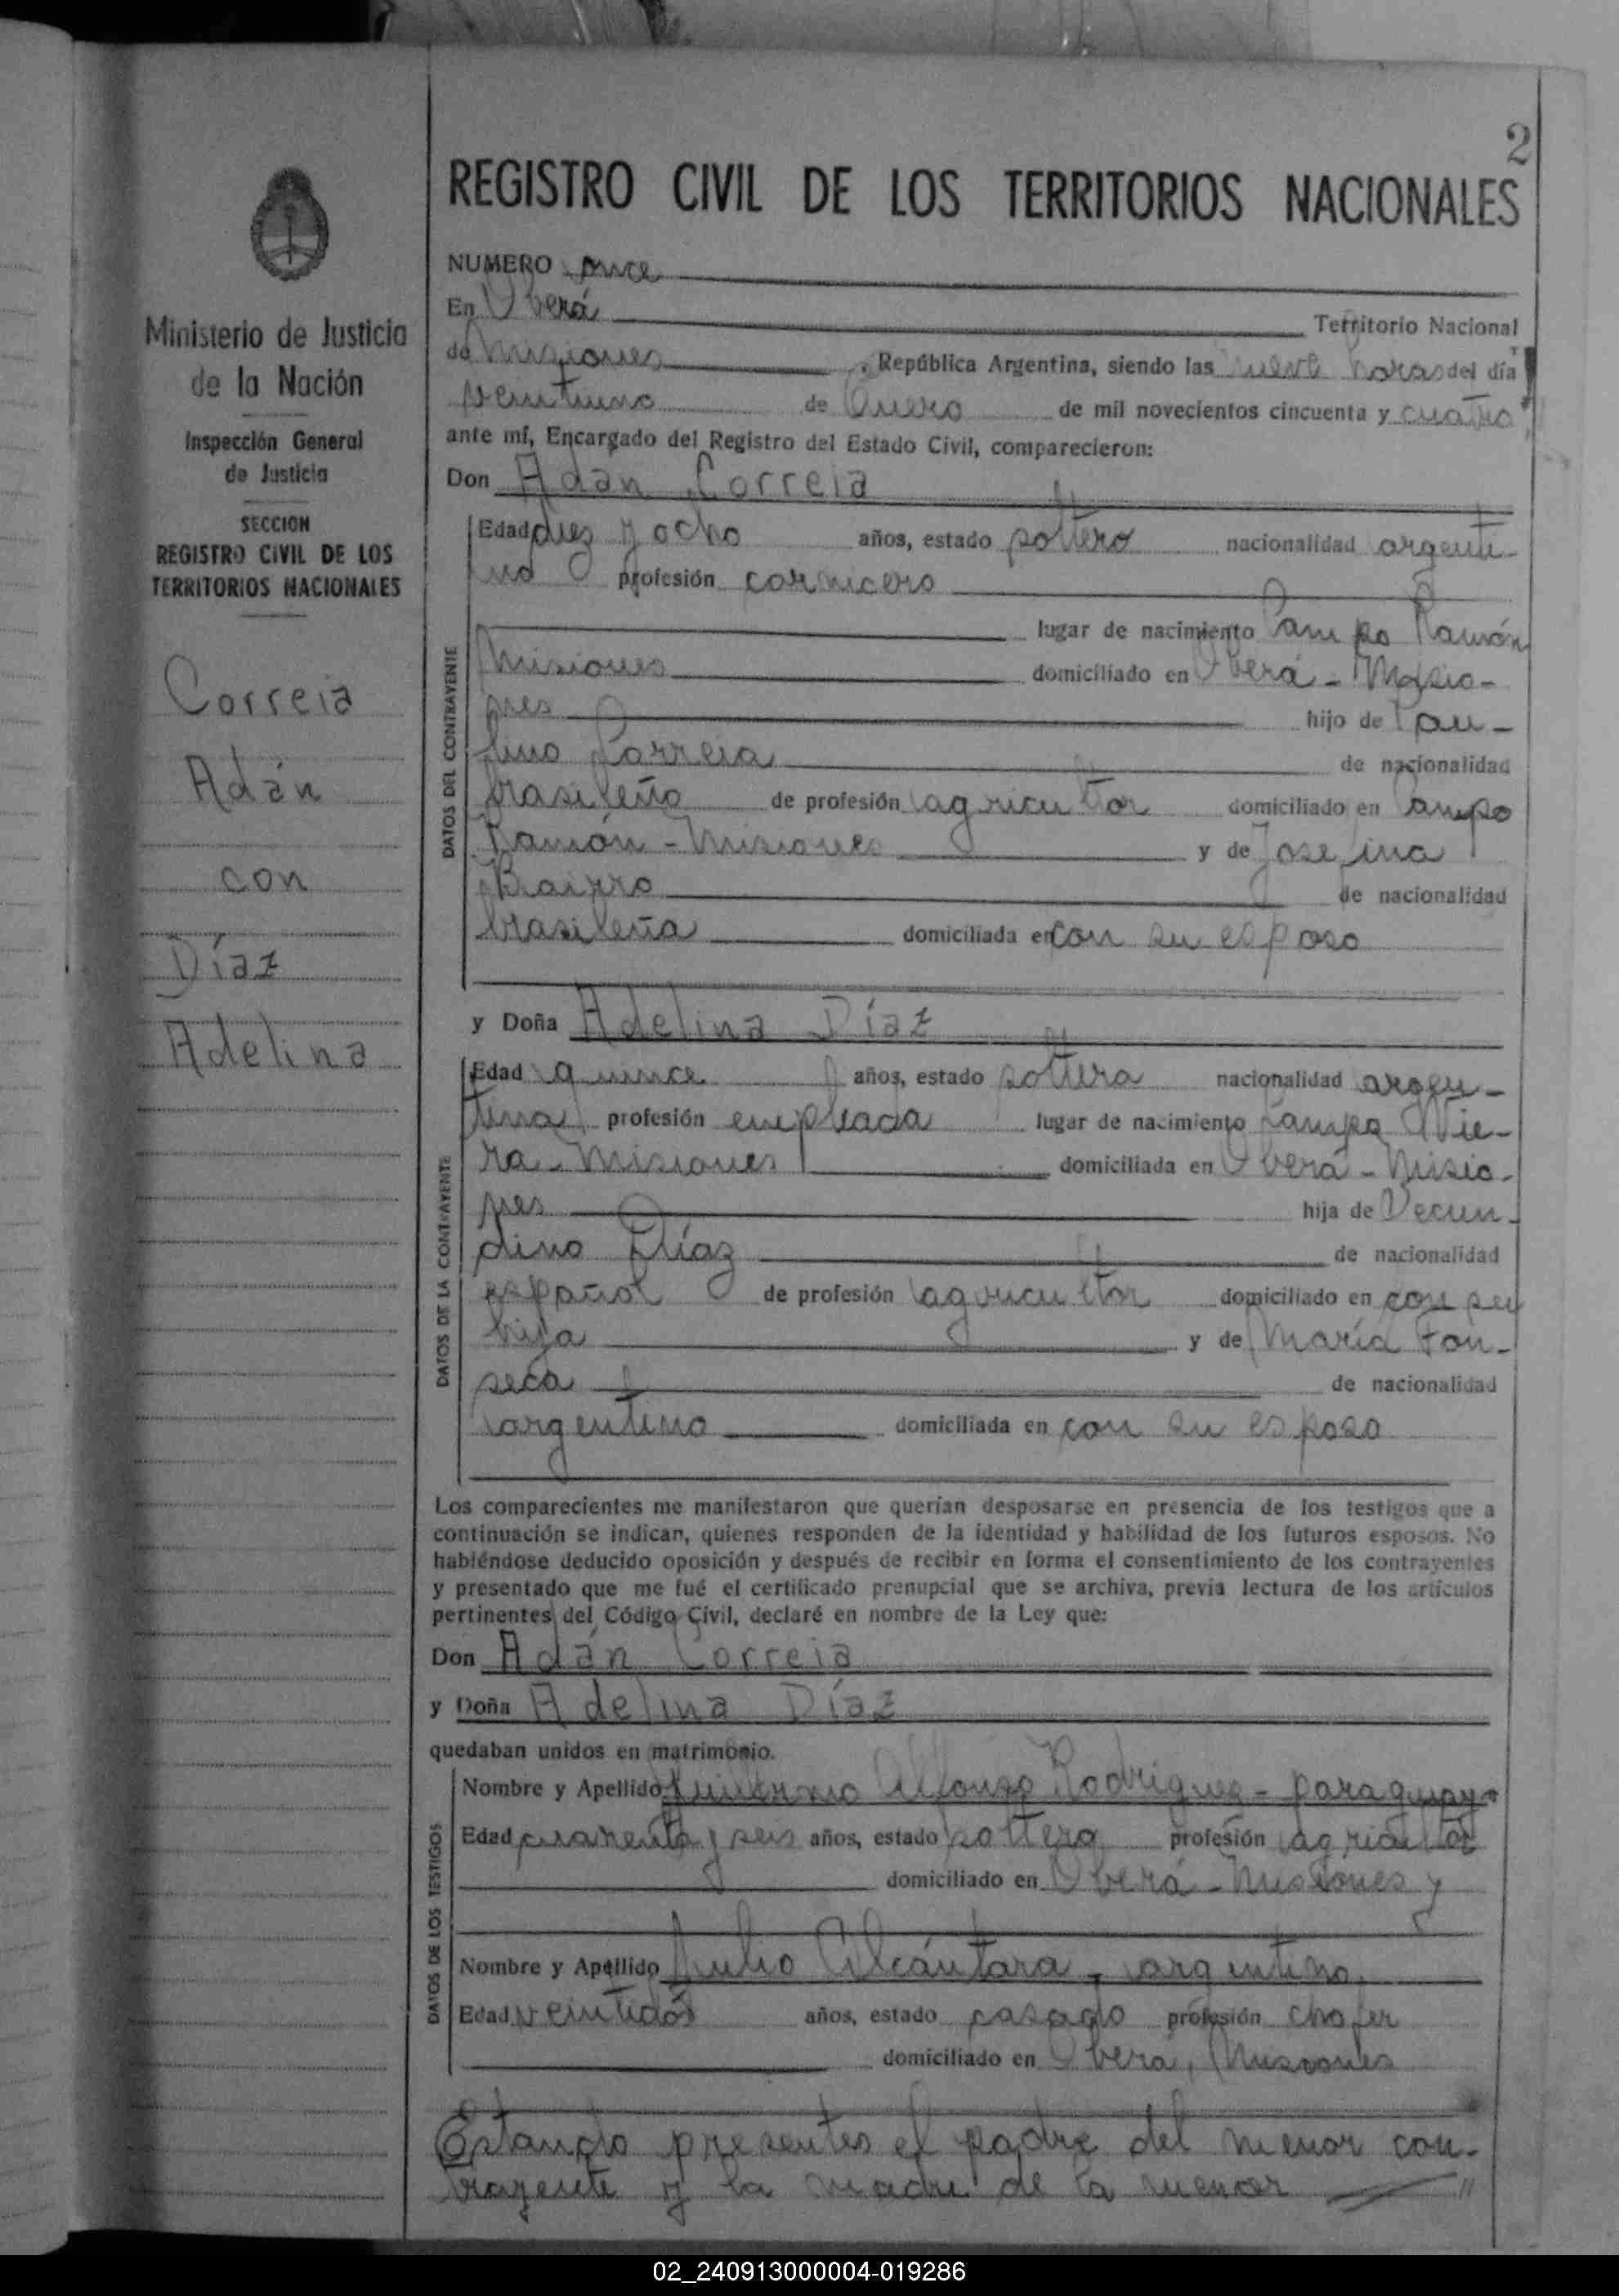 2
REGISTRO CIVIL DE LOS TERRITORIOS NACIONALES
Ministerio de Justicia
de la Nación
Inspección General
de Justicia
SECCION
REGISTRO CIVIL DE LOS
TERRITORIOS NACIONALES
Correia
Adán
con
Díaz
Adelina
NUMERO once
En Oberá Territorio Nacional
de Misiones, República Argentina, siendo las nueve horas del día
veintiuno de Enero de mil novecientos cincuenta y cuatro,
ante mí, Encargado del Registro del Estado Civil, comparecieron:
Don Adán Correia
DATOS DEL CONTRAYENTE
Edad diez y ocho años, estado soltero nacionalidad argenti-
no profesión carnicero
lugar de nacimiento Campo Ramón
Misiones domiciliado en Oberá - Misio-
nes hijo de Pau-
lino Correia de nacionalidad
brasileño de profesión agricultor domiciliado en Campo
Ramón - Misiones y de Josefina
Bairro de nacionalidad
brasileña domiciliada en con su esposo
y Doña Adelina Díaz
DATOS DE LA CONTRAYENTE
Edad quince años, estado soltera nacionalidad argen-
tina profesión empleada lugar de nacimiento Campo Vie-
ra - Misiones domiciliada en Oberá - Misio-
nes hija de
dino Díaz de nacionalidad
español de profesión agricultor domiciliado en con su
hija y de María Fon-
seca de nacionalidad
argentina domiciliada en con su esposo
Los comparecientes me manifestaron que querían desposarse en presencia de los testigos que a
continuación se indican, quienes responden de la identidad y habilidad de los futuros esposos. No
habiéndose deducido oposición y después de recibir en forma el consentimiento de los contrayentes
y presentado que me fué el certificado prenupcial que se archiva, previa lectura de los artículos
pertinentes del Código Civil, declaré en nombre de la Ley que:
Don Adán Correia
y Doña Adelina Díaz
quedaban unidos en matrimonio.
DATOS DE LOS TESTIGOS
Nombre y Apellido Guillermo Alfonso Rodriguez - paraguayo
Edad cuarenta y seis años, estado soltero profesión agricultor
domiciliado en Oberá - Misiones y
Nombre y Apellido Julio Alcántara - argentino
Edad veintidós años, estado casado profesión chofer
domiciliado en Oberá, Misiones
Estando presentes el padre del menor con-
trayente y la madre de la menor
02_240913000004-019286